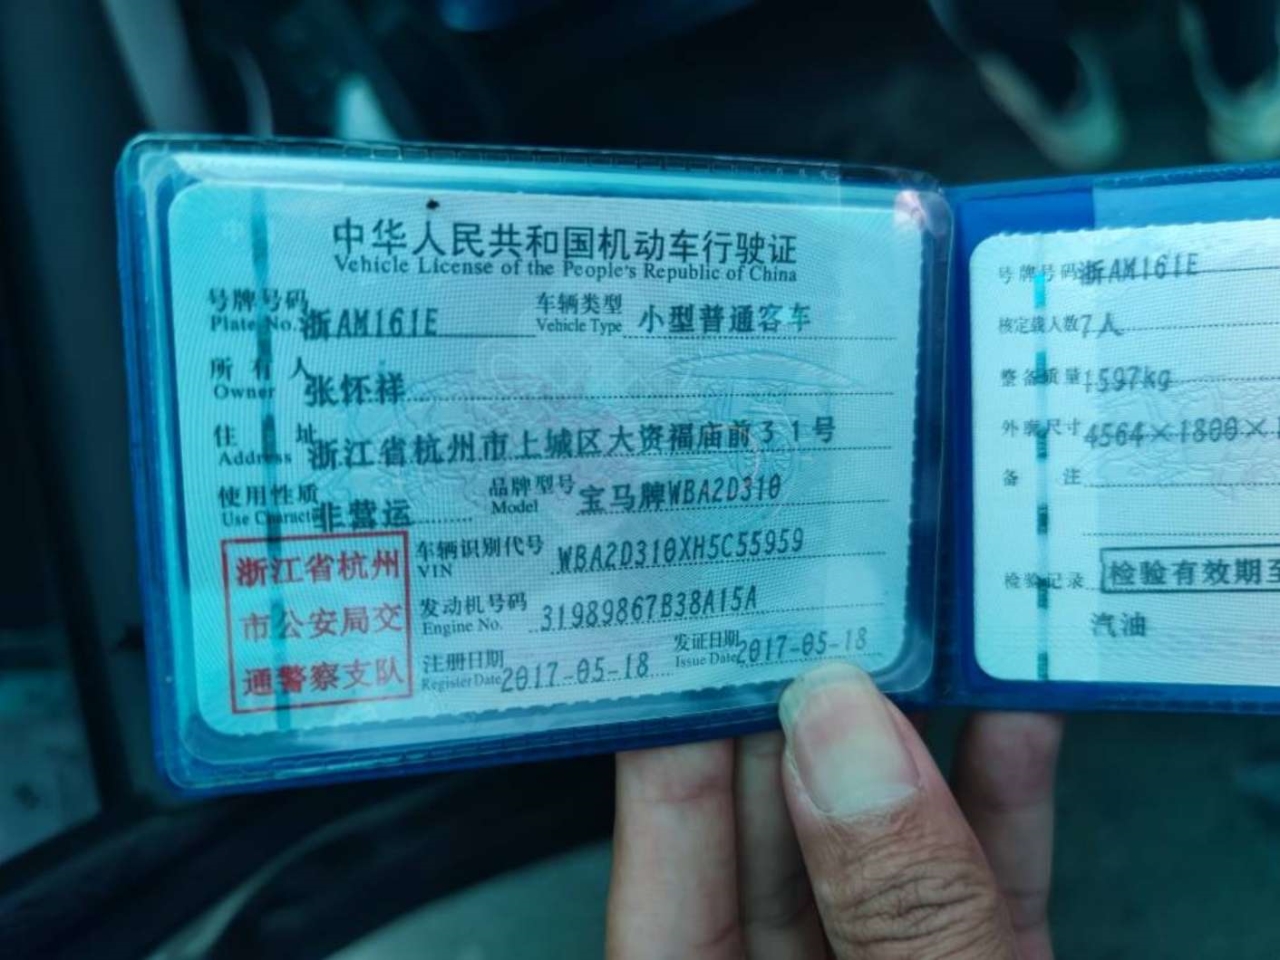 中华人民共和国机动车行驶证
Vehicle License of the People's Republic of China
号牌号码 浙AM161E 车辆类型 小型普通客车
Plate No. Vehicle Type
所有人 张怀祥
Owner
住址 浙江省杭州市上城区大资福庙前31号
Address
使用性质 非营运 品牌型号 宝马牌WBA2D310
Use Character Model
浙江省杭州
市公安局交
通警察支队
车辆识别代号 WBA2D310XH5C55959
VIN
发动机号码 31989867B38A15A
Engine No.
注册日期 2017-05-18 发证日期 2017-05-18
Register Date Issue Date
号牌号码 浙AM161E
核定载人数 7人
整备质量 1597kg
外廓尺寸 4564×1800×1
备注
检验记录 检验有效期至
汽油